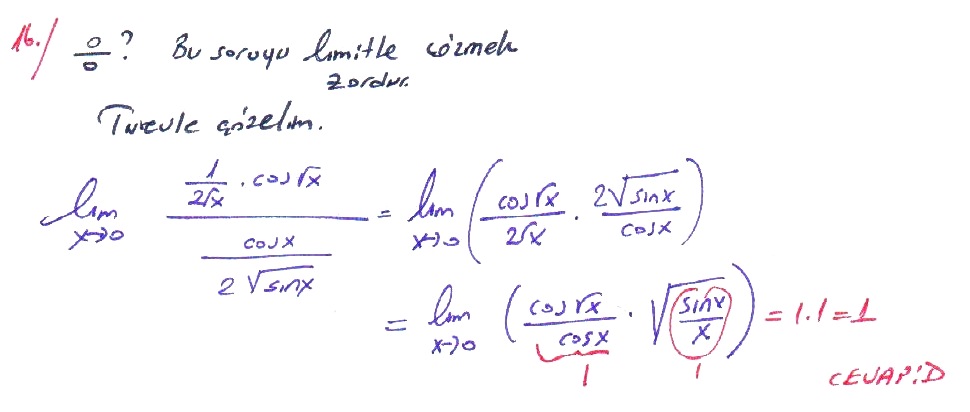 16./ 0/0 ? Bu soruyu limitle çözmek
zordur.
Türevle çözelim.
lim x→0 (1/(2√x) . cos√x) / (cosx / (2√sinx)) = lim x→0 (cos√x / (2√x) . 2√sinx / cosx)
= lim x→0 (cos√x / cosx . √(sinx / x)) = 1.1=1
1 1
CEVAP:D